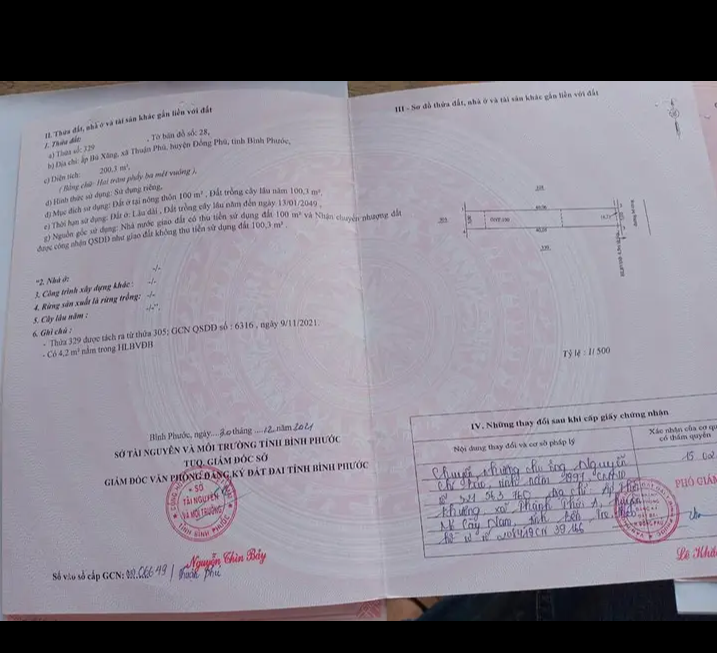 II. Thửa đất, nhà ở và tài sản khác gắn liền với đất
1. Thửa đất:
a) Thửa số: 329 , Tờ bản đồ số: 28,
b) Địa chỉ: ấp Bù Xăng, xã Thuận Phú, huyện Đồng Phú, tỉnh Bình Phước,
c) Diện tích: 200,3 m²,
( Bằng chữ: Hai trăm phẩy ba mét vuông ),
d) Hình thức sử dụng: Sử dụng riêng,
đ) Mục đích sử dụng: Đất ở tại nông thôn 100 m² , Đất trồng cây lâu năm 100,3 m²,
e) Thời hạn sử dụng: Đất ở: Lâu dài , Đất trồng cây lâu năm đến ngày 13/01/2049 ,
g) Nguồn gốc sử dụng: Nhà nước giao đất có thu tiền sử dụng đất 100 m² và Nhận chuyển nhượng đất
được công nhận QSDĐ như giao đất không thu tiền sử dụng đất 100,3 m² .
"2. Nhà ở: -/-
3. Công trình xây dựng khác: -/-
4. Rừng sản xuất là rừng trồng: -/-
5. Cây lâu năm : -/-".
6. Ghi chú :
- Thửa 329 được tách ra từ thửa 305; GCN QSDĐ số : 6316 , ngày 9/11/2021.
- Có 4,2 m² nằm trong HLBVĐB
Bình Phước, ngày 30 tháng 12 năm 2021
SỞ TÀI NGUYÊN VÀ MÔI TRƯỜNG TỈNH BÌNH PHƯỚC
TUQ. GIÁM ĐỐC SỞ
GIÁM ĐỐC VĂN PHÒNG ĐĂNG KÝ ĐẤT ĐAI TỈNH BÌNH PHƯỚC
SỞ
TÀI NGUYÊN
VÀ MÔI TRƯỜNG
TỈNH BÌNH PHƯỚC
Nguyễn Thìn Bảy
Số vào sổ cấp GCN: 06649 / Thuận Phú
III - Sơ đồ thửa đất, nhà ở và tài sản khác gắn liền với đất
Tỷ lệ : 1/ 500
IV. Những thay đổi sau khi cấp giấy chứng nhận
Nội dung thay đổi và cơ sở pháp lý
Xác nhận của cơ qu
có thẩm quyền
Chuyển nhượng cho ông Nguyễn
sinh năm 1997, CMND
số 321 563 760 địa chỉ
xã Thành Thới A, huyện
Mỏ Cày Nam, tỉnh Bến Tre theo
hồ sơ số
PHÓ GIÁM
Lê Khá